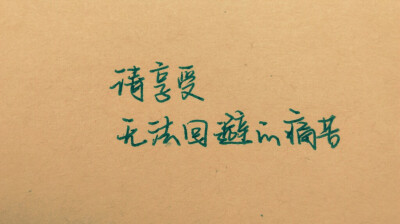 请享受
无法回避的痛苦